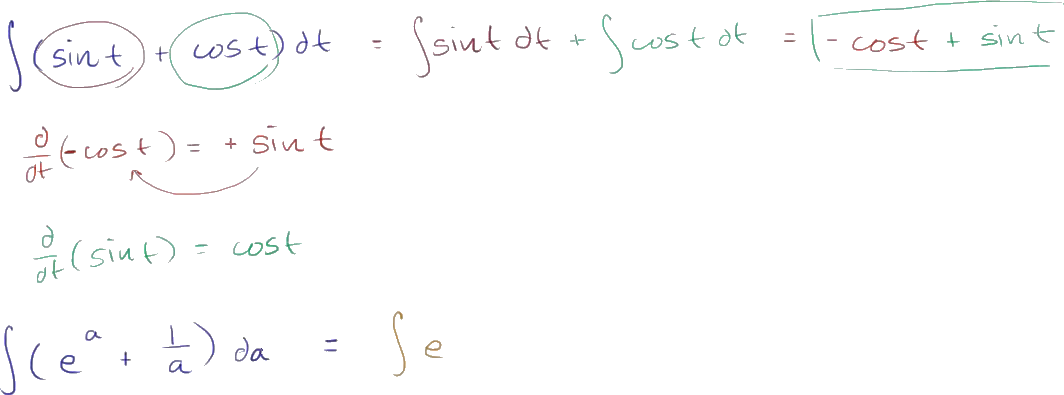 ∫(sin t + cos t) dt = ∫sin t dt + ∫cos t dt = - cos t + sin t
d/dt (-cos t) = + sin t
d/dt (sin t) = cos t
∫(e^a + 1/a) da = ∫e